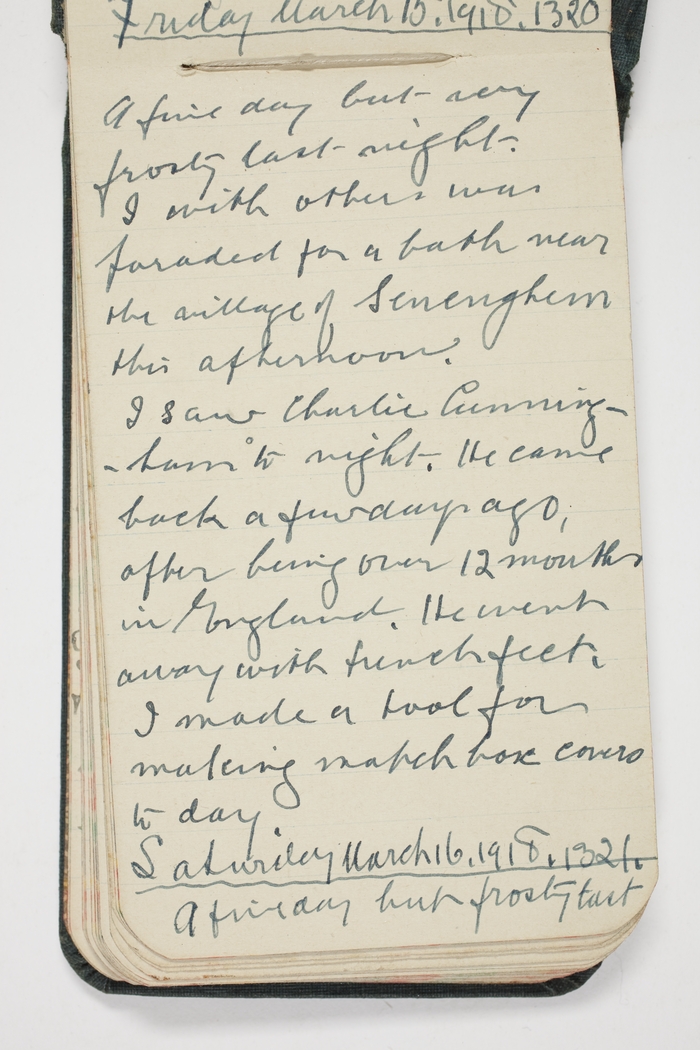 Friday March 15. 1918. 1320
A fine day but very
frosty last night.
I with others was
paraded for a bath near
the village of Senenghem
this afternoon.
I saw Charlie Cunning-
-ham to night. He came
back a few days ago,
after being over 12 months
in England. He went
away with trench feet.
I made a tool for
making match box covers
to day
Saturday March 16. 1918. 1321.
A fine day but frosty last